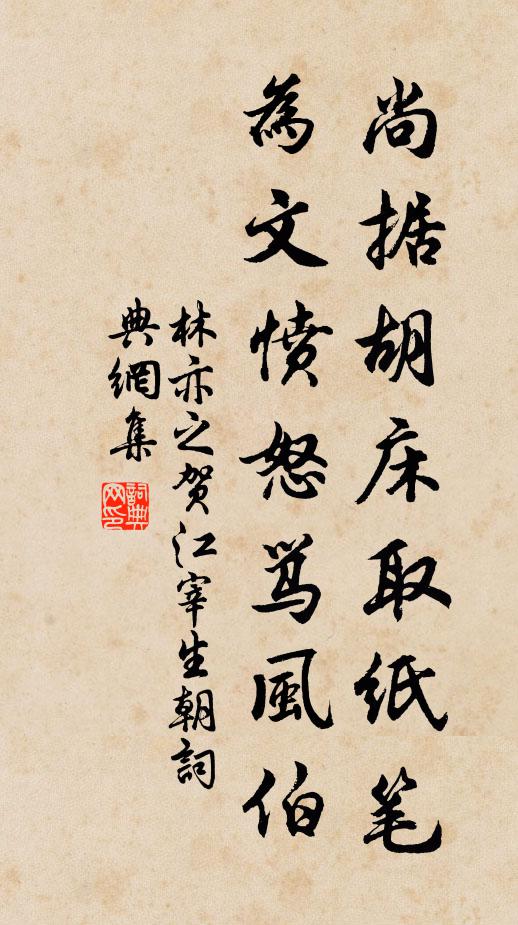 尚据胡床取纸笔
為文愤怒骂風伯
林亦之贺江宰生朝詞
典網集
詞典网印